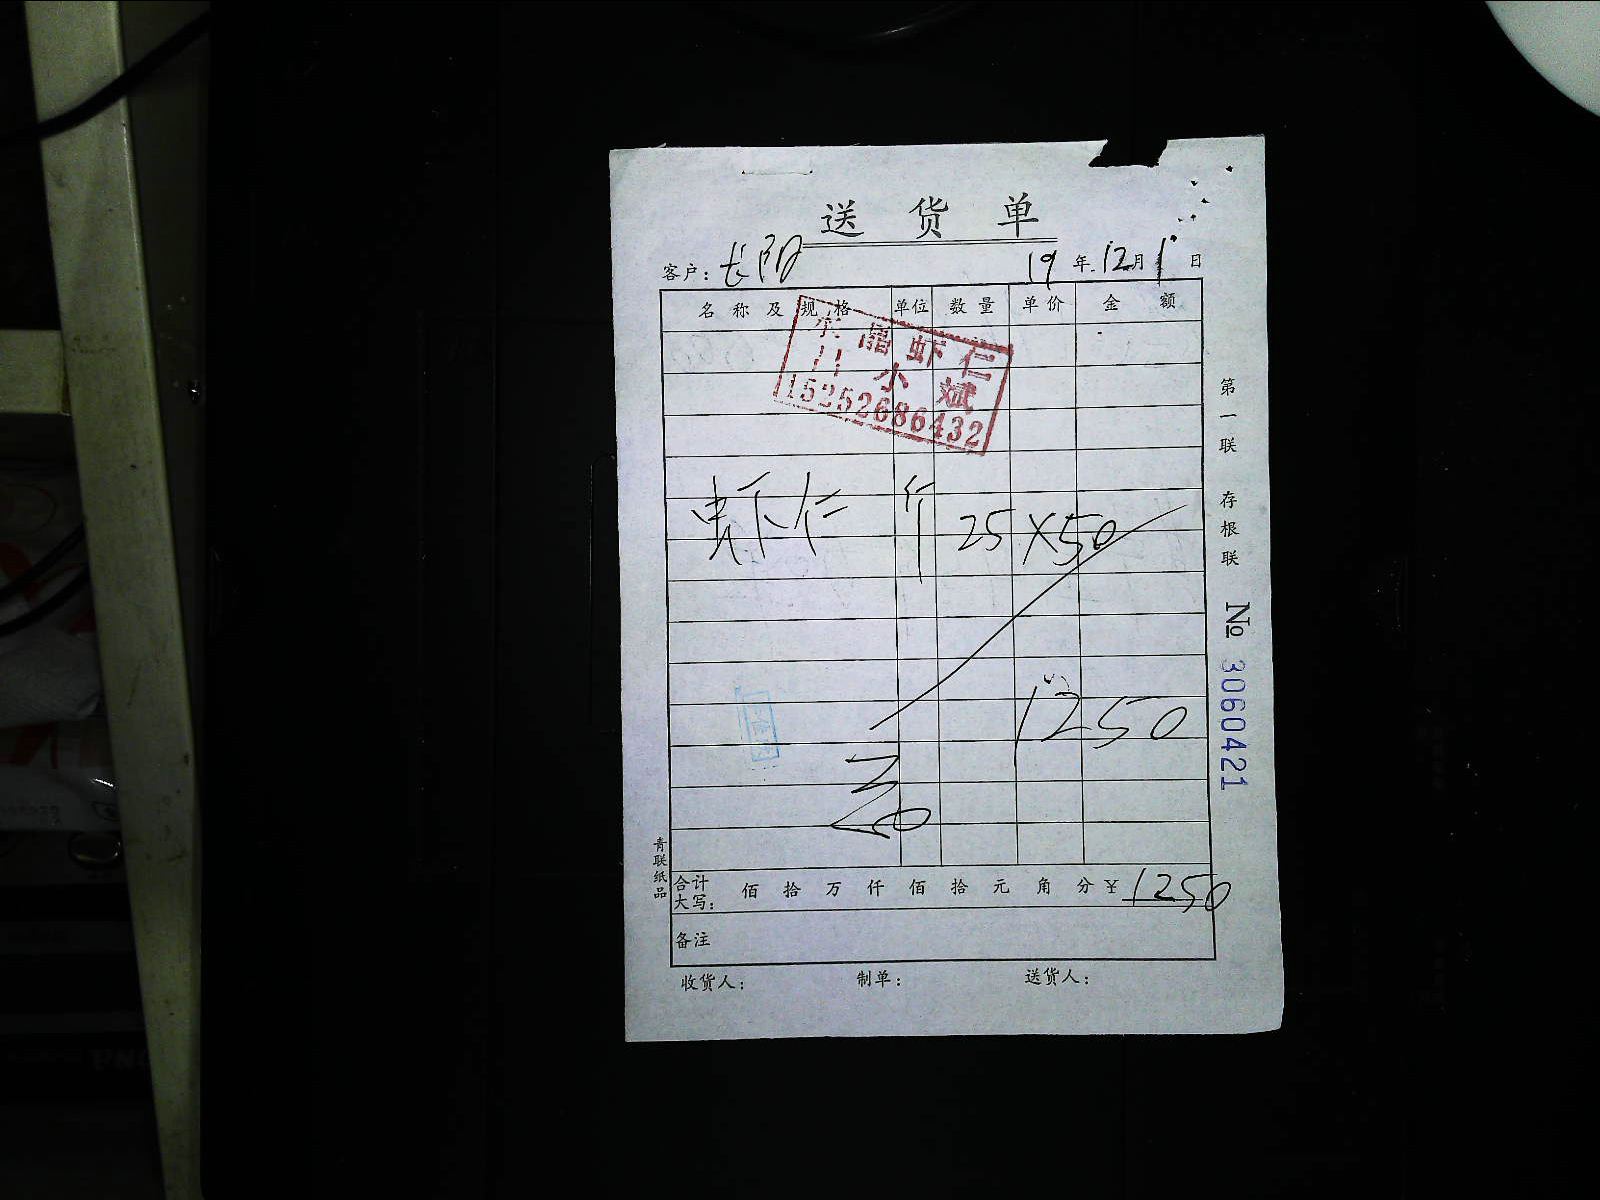 送货单
客户：长阳 19年12月1日
名称及规格 单位 数量 单价 金额
水晶虾仁
小斌
15252686432
虾仁 斤 25 X50
1250
合计大写： 佰 拾 万 仟 佰 拾 元 角 分 ¥ 1250
备注
收货人： 制单： 送货人：
第一联 存根联
№ 3060421
青联纸品